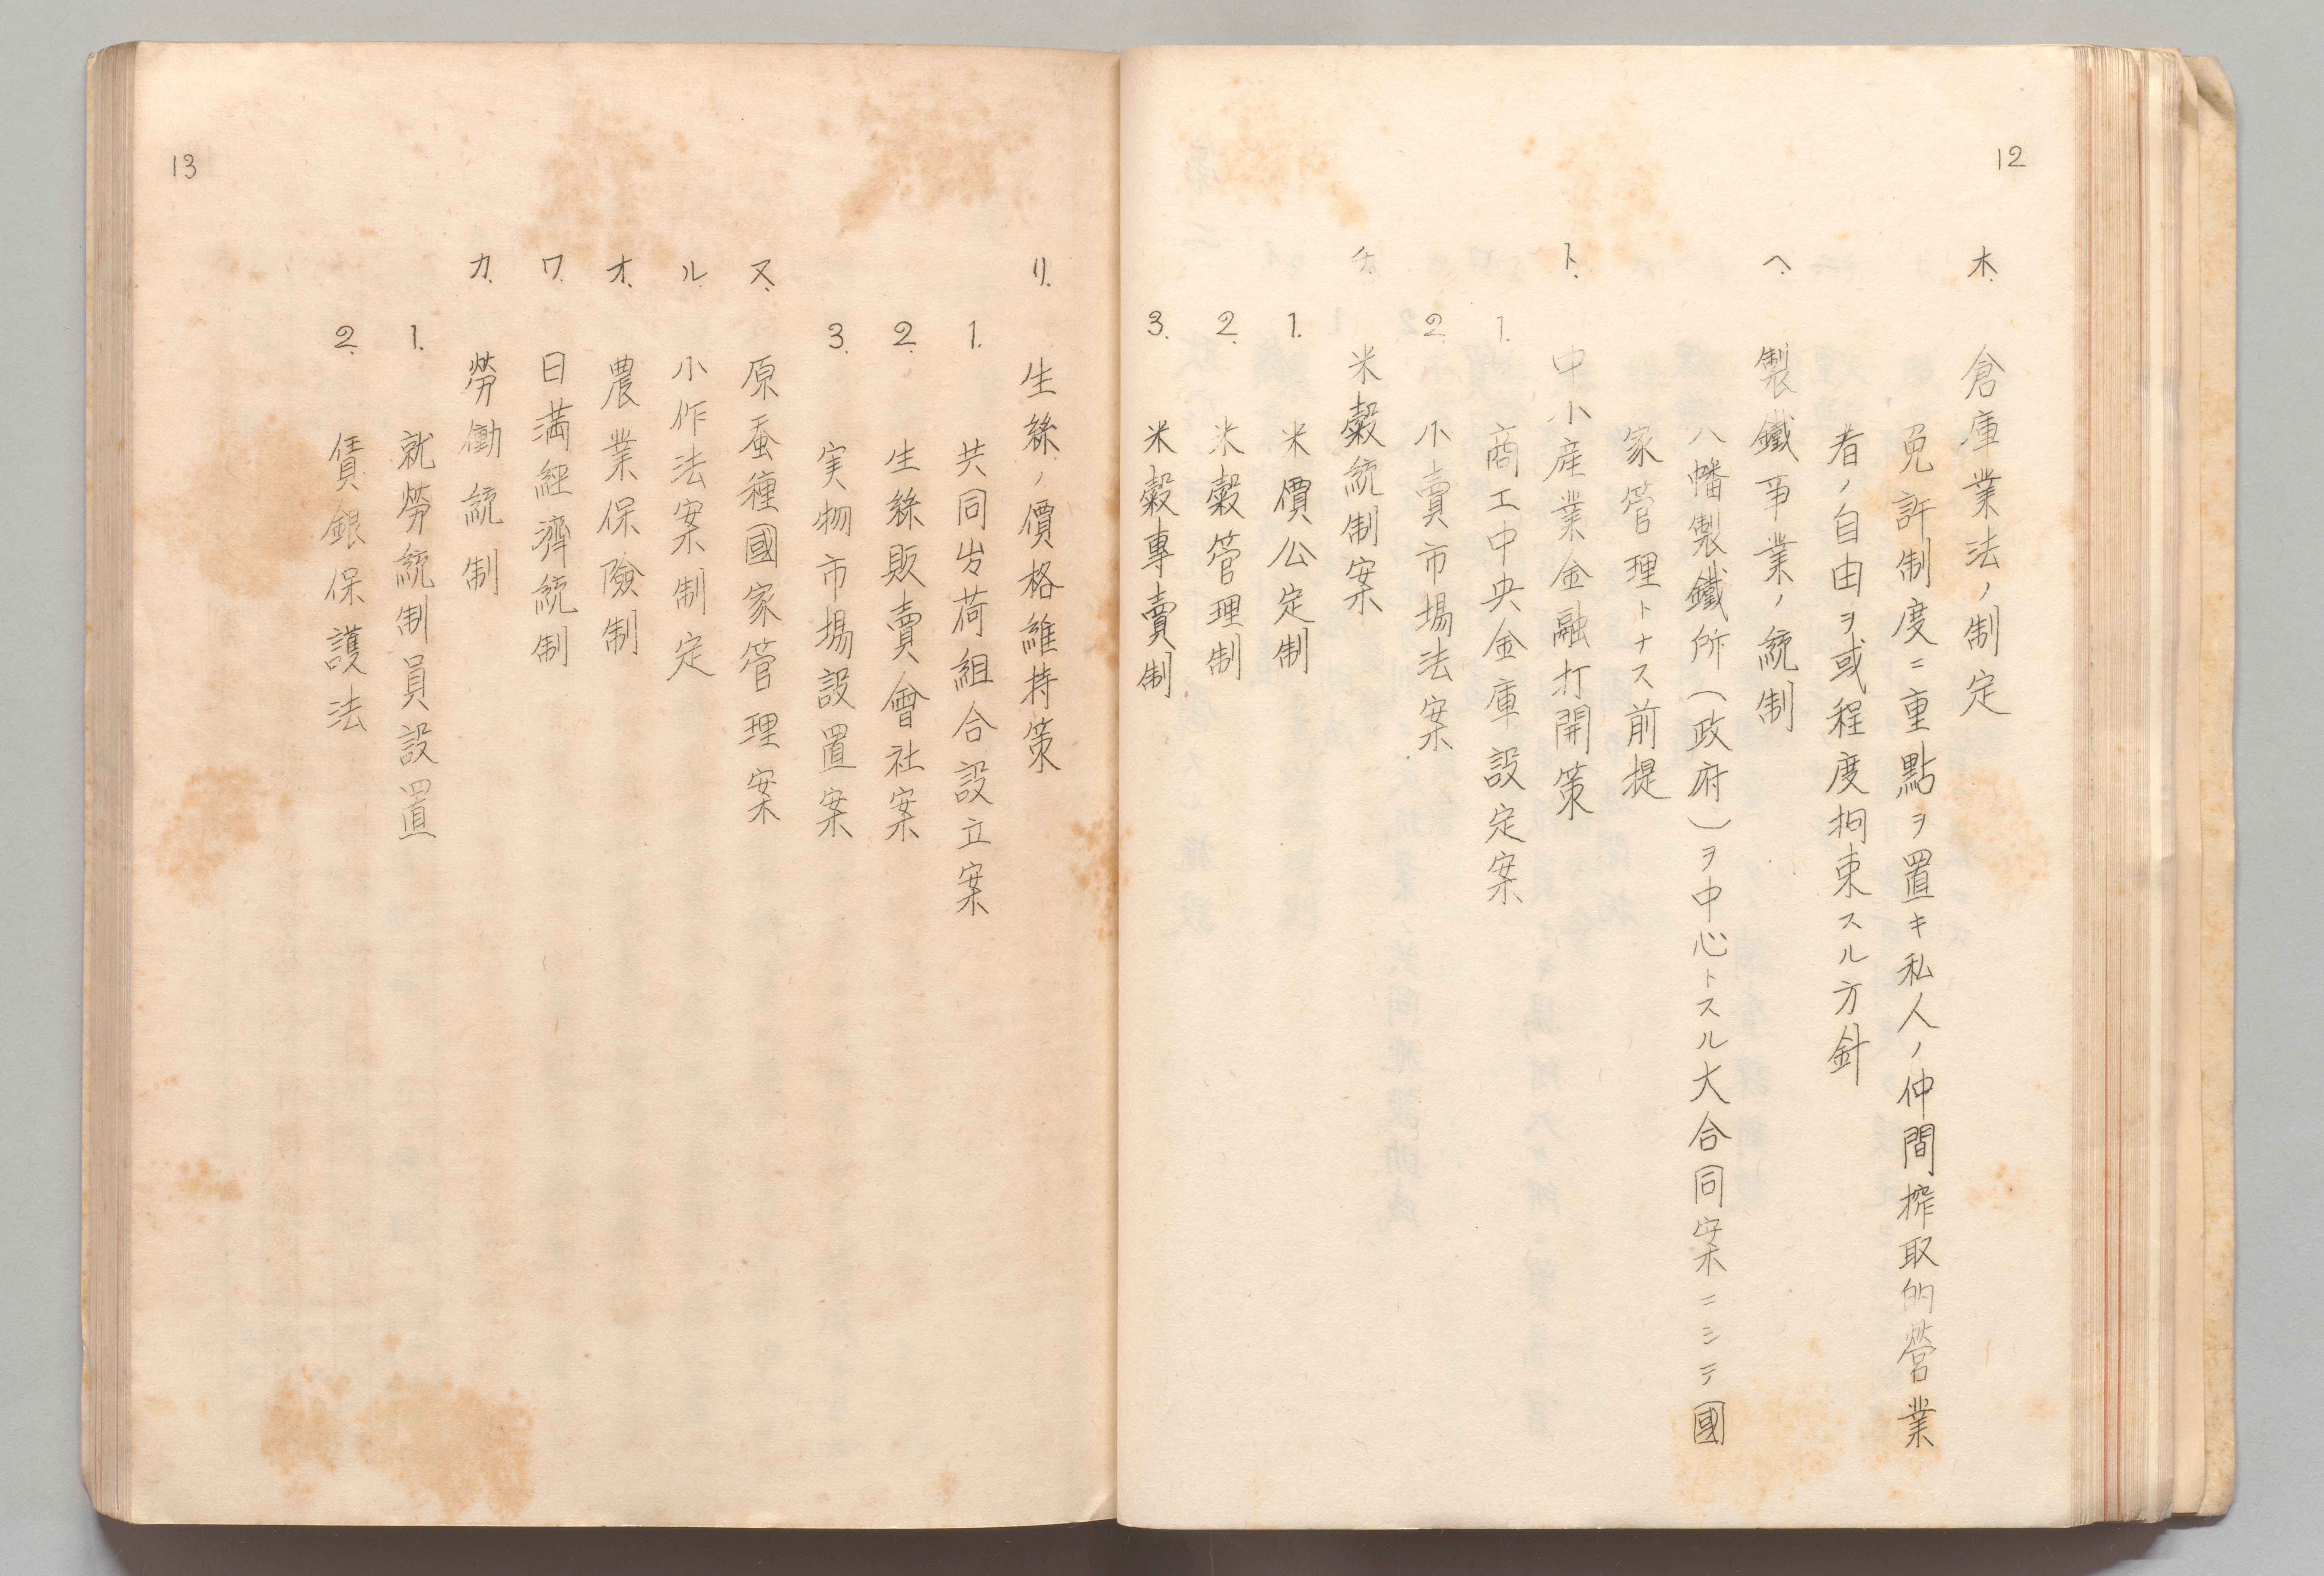 12
ホ. 倉庫業法ノ制定
免許制度ニ重點ヲ置キ私人ノ仲間搾取的營業
者ノ自由ヲ或程度拘束スル方針
ヘ. 製鐵事業ノ統制
八幡製鐵所(政府)ヲ中心トスル大合同案ニシテ國
家管理トナス前提
ト. 中小産業金融打開策
1. 商工中央金庫設定案
2. 小賣市場法案
チ. 米穀統制案
1. 米價公定制
2. 米穀管理制
3. 米穀專賣制
13
リ. 生絲ノ價格維持策
1. 共同出荷組合設立案
2. 生絲販賣會社案
3. 実物市場設置案
ヌ. 原蚕種國家管理案
ル. 小作法案制定
オ. 農業保險制
ワ. 日満經濟統制
カ. 勞働統制
1. 就勞統制員設置
2. 賃銀保護法